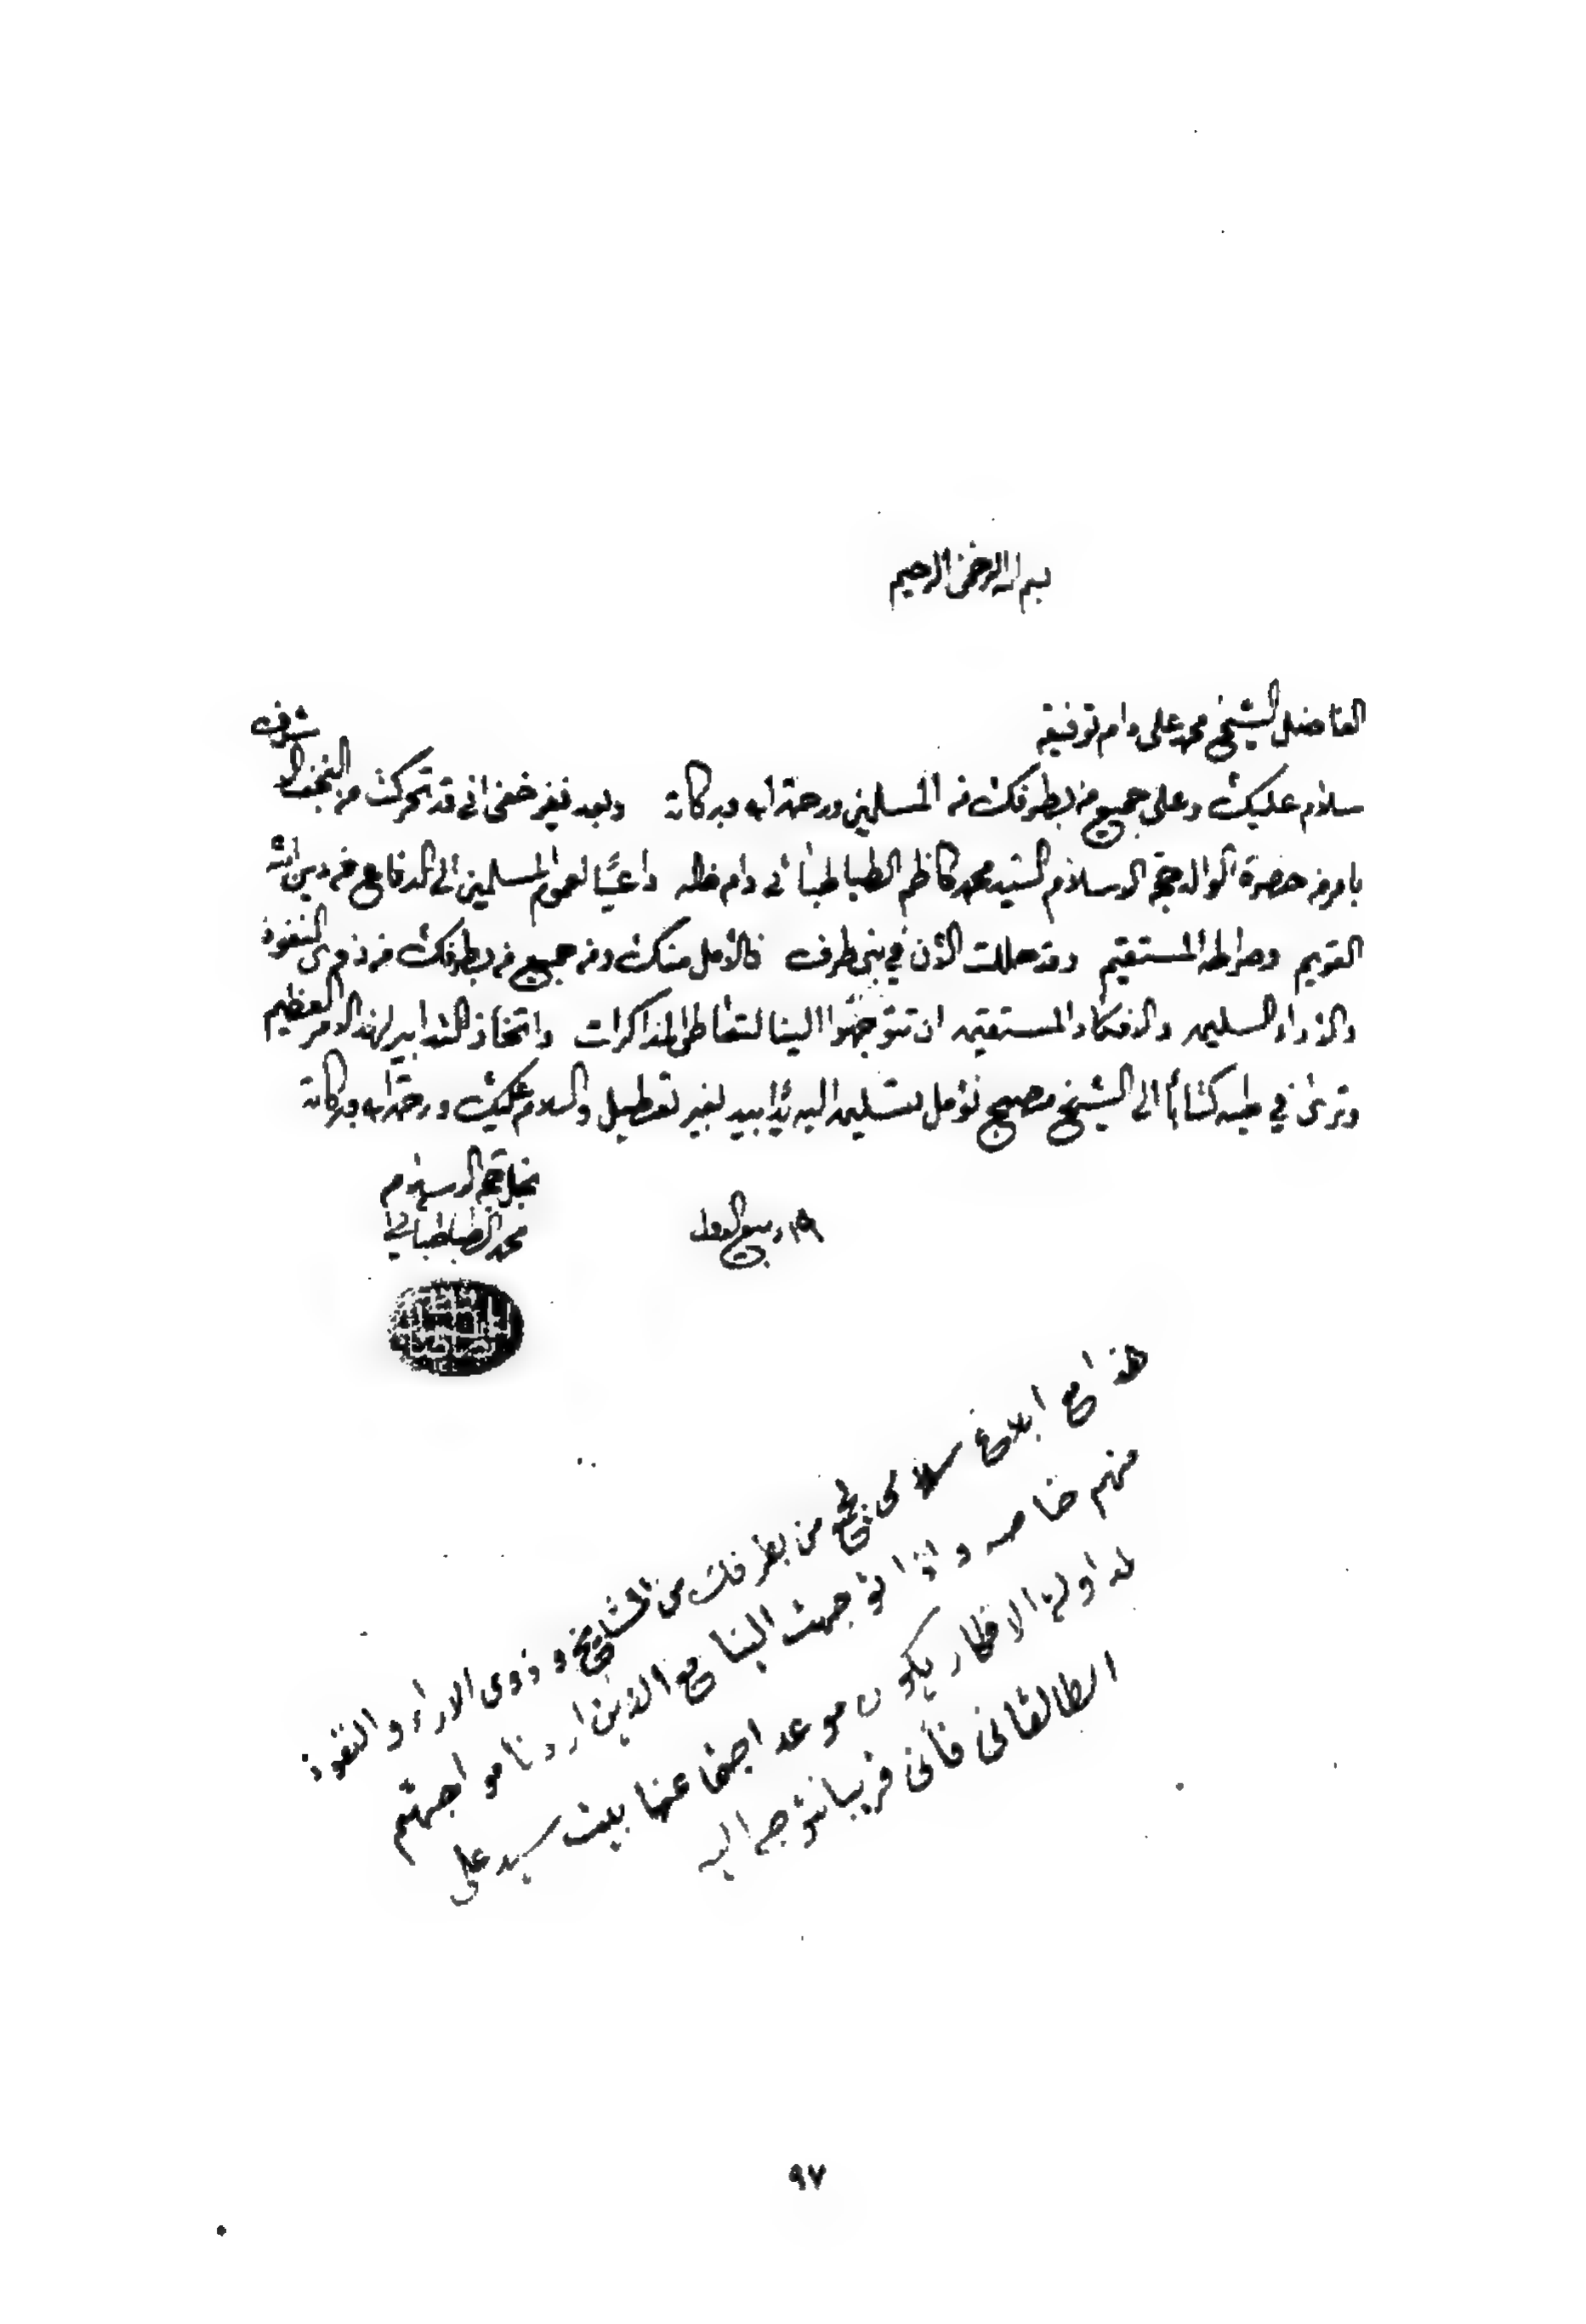 بسم الله الرحمن الرحيم
الفاضل الشيخ محمد علي دام توفيقه
سلام عليك وعلى جميع من بطرفك من المسلمين ورحمة الله وبركاته وبعد فغير خفي اني قد تحركت من النجف الاشرف
بامر من حضرة الوالد حجة الاسلام السيد محمد كاظم الطباطبائي دام ظله داعيًا لعموم المسلمين الى الدفاع عن دين الله
القويم وصراطه المستقيم وقد حللت الآن في بني طرف فالأمل منك ومن جميع من بطرفك من ذوي النفوذ
والآراء السليمه والافكار المستقيمه ان تتوجهوا الينا لنتعاطى المذاكرات واتخاذ التدابير لهذا الامر العظيم
وترى في طيه كتاباً الى الشيخ مصبح نؤمل تسليمه اليه يدًا بيد بغير تعطيل والسلام عليك ورحمة الله وبركاته
نجل حجة الاسلام
١٩ ربيع الاول
محمد الطباطبائي
هذا مع ابلاغ سلامي لجميع من بطرفك من المشايخ وذوي الاراء والنفوذ
منهم خاصه واذا توجهت الينا مع الذين اردنا مواجهتهم
لمداولة الافكار يكون موعد اجتماعنا بيت سيد علي
الطالقاني فأني قريبا نتوجه اليه
٩٧